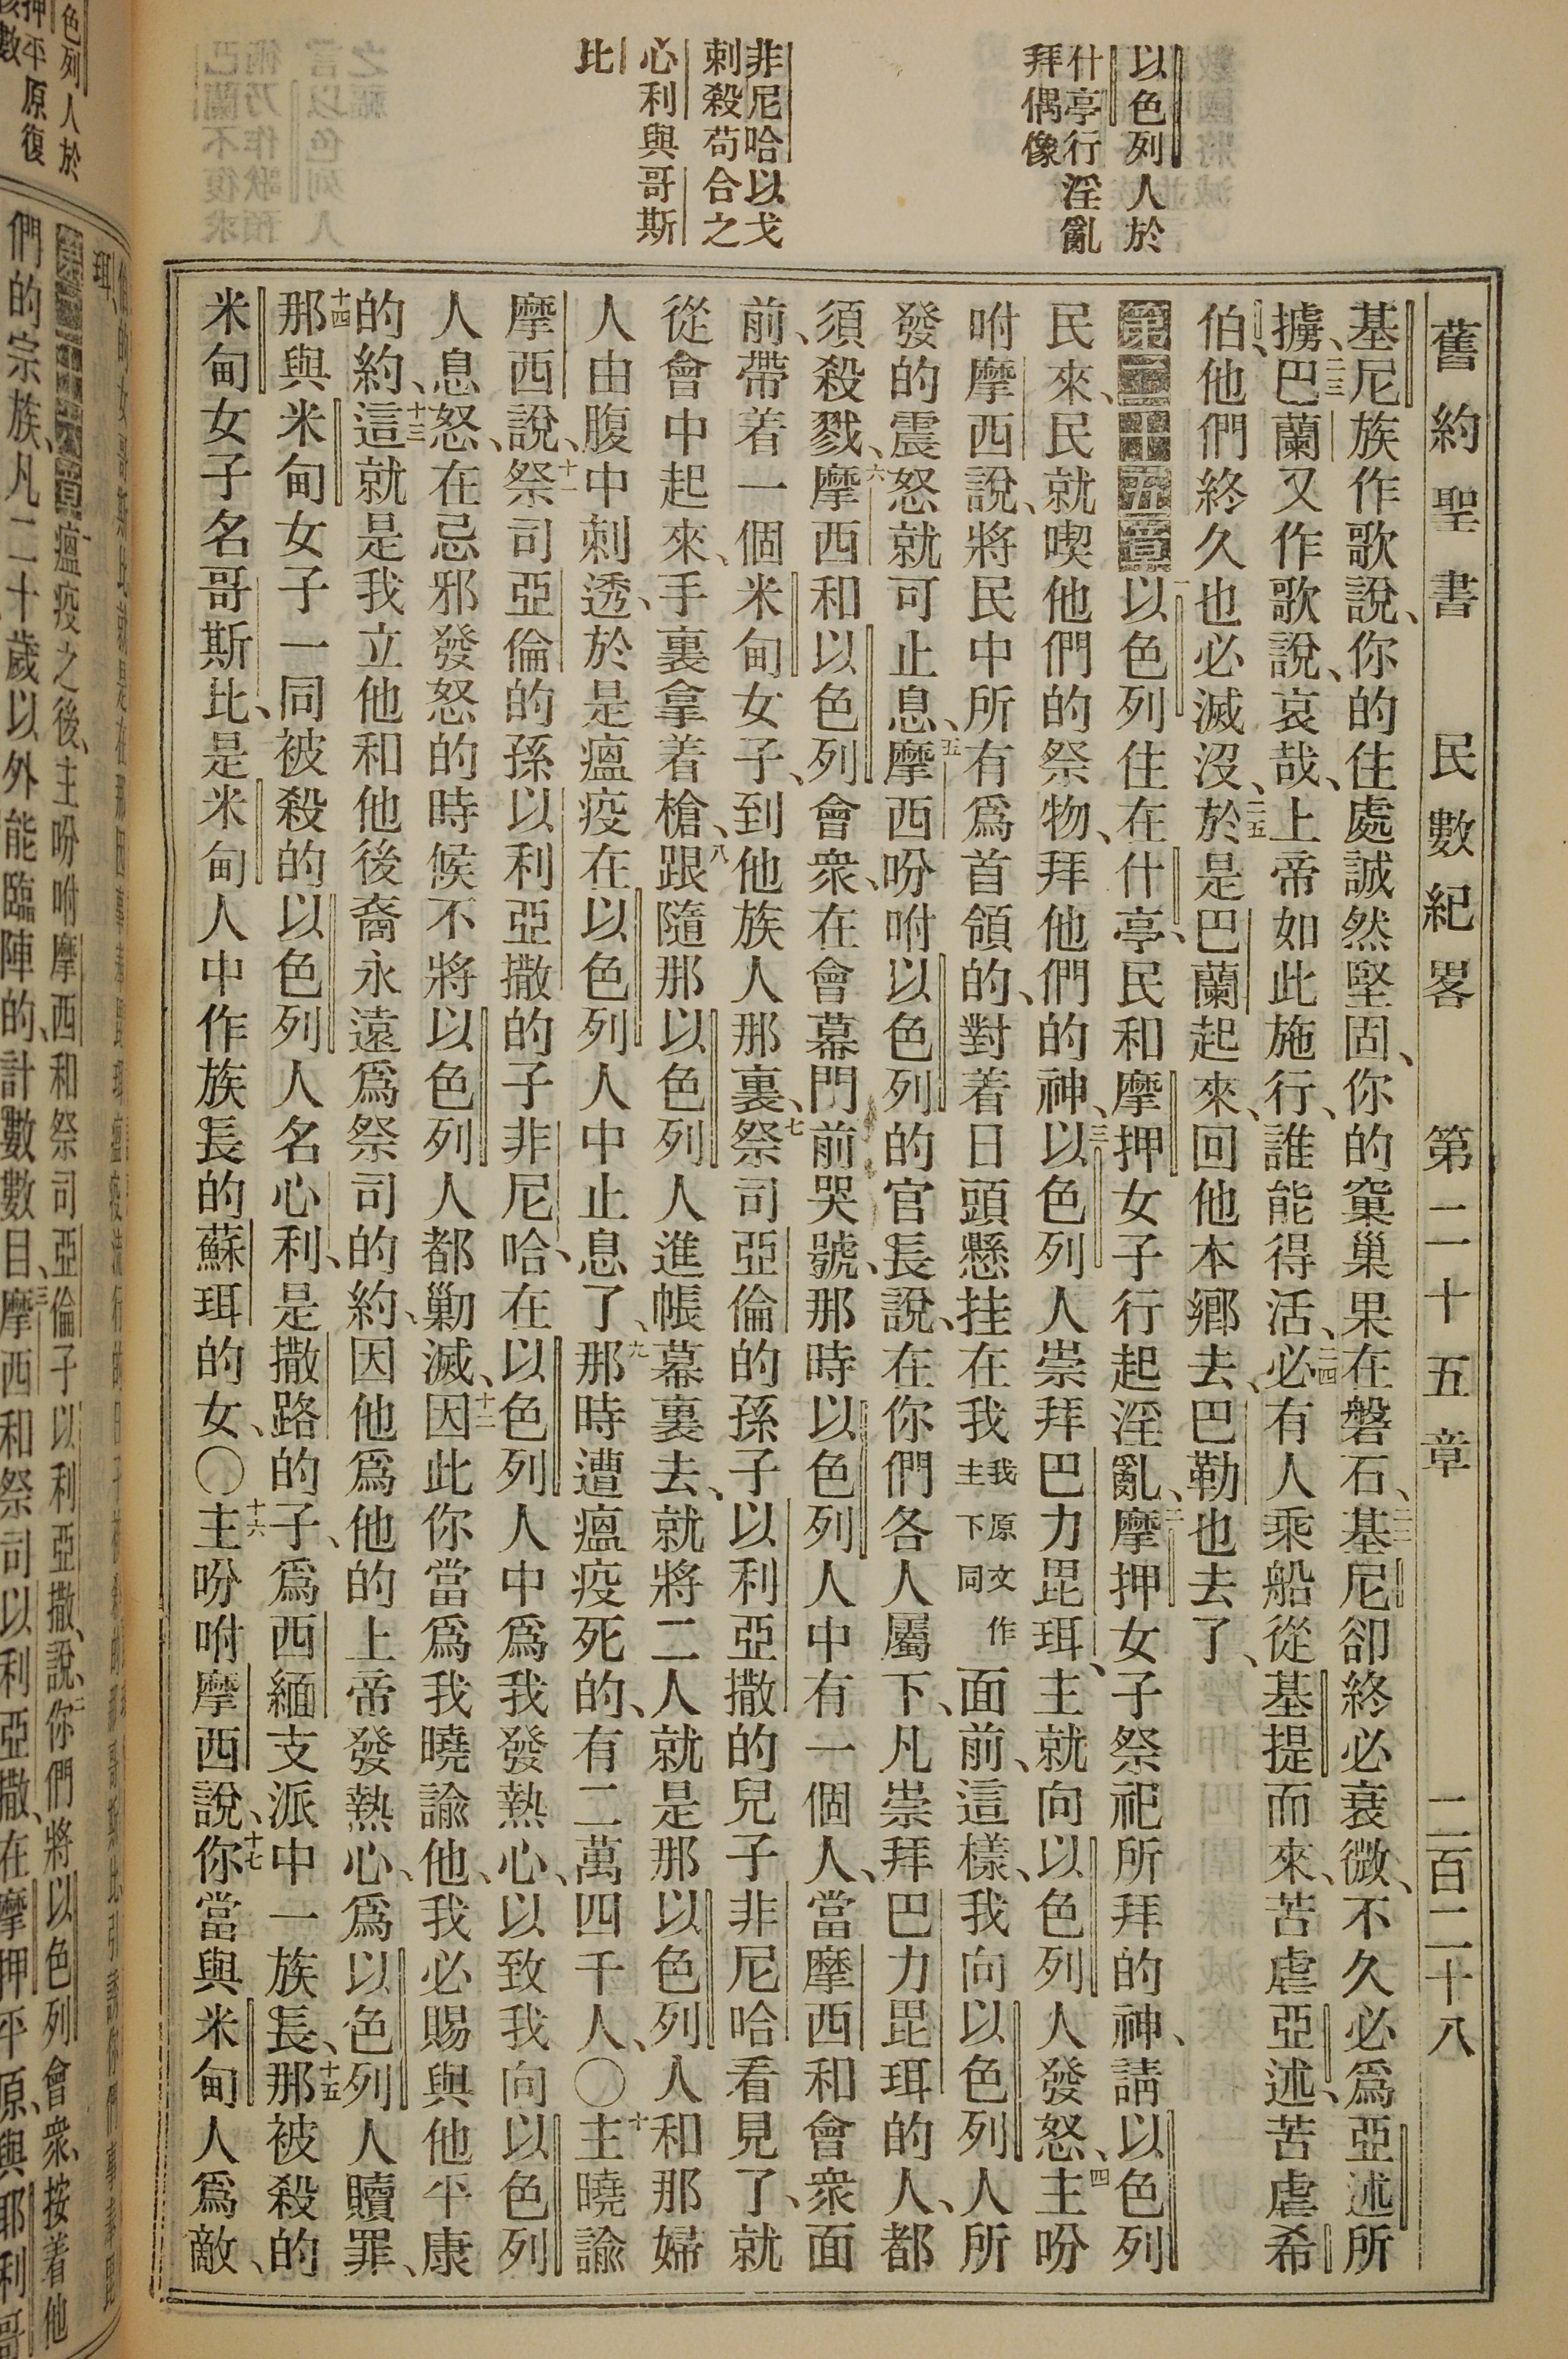 以色列人於
什亭行淫亂
拜偶像
非尼哈以戈
刺殺苟合之
心利與哥斯
比
舊約聖書 民數紀畧 第二十五章 二百二十八
基尼族作歌說、你的住處誠然堅固、你的窠巢果在磐石、二二基尼卻終必衰微、不久必爲亞述所
擄、二三巴蘭又作歌說、哀哉、上帝如此施行、誰能得活、二四必有人乘船從基提而來、苦虐亞述、苦虐希
伯、他們終久也必滅沒、二五於是巴蘭起來、回他本鄉去、巴勒也去了、
第二十五章一以色列住在什亭、民和摩押女子行起淫亂、二摩押女子祭祀所拜的神、請以色列
民來、民就喫他們的祭物、拜他們的神、三以色列人崇拜巴力毘珥、主就向以色列人發怒、四主吩
咐摩西說、將民中所有爲首領的、對着日頭懸挂在我我原文作主下同面前、這樣、我向以色列人所
發的震怒就可止息、五摩西吩咐以色列的官長說、在你們各人屬下、凡崇拜巴力毘珥的人、都
須殺戮、六摩西和以色列會衆、在會幕門前哭號、那時以色列人中有一個人、當摩西和會衆面
前、帶着一個米甸女子、到他族人那裏、七祭司亞倫的孫子以利亞撒的兒子非尼哈看見了、就
從會中起來、手裏拿着槍、八跟隨那以色列人進帳幕裏去、就將二人就是那以色列人和那婦
人由腹中刺透、於是瘟疫在以色列人中止息了、九那時遭瘟疫死的、有二萬四千人、○十主曉諭
摩西說、十一祭司亞倫的孫以利亞撒的子非尼哈、在以色列人中爲我發熱心、以致我向以色列
人息怒、在忌邪發怒的時候不將以色列人都勦滅、十二因此你當爲我曉諭他、我必賜與他平康
的約、十三這就是我立他和他後裔永遠爲祭司的約、因他爲他的上帝發熱心、爲以色列人贖罪、
十四那與米甸女子一同被殺的以色列人名心利、是撒路的子、爲西緬支派中一族長、十五那被殺的
米甸女子名哥斯比、是米甸人中作族長的蘇珥的女、○十六主吩咐摩西說、十七你當與米甸人爲敵、
瘟疫之後、主吩咐摩西和祭司亞倫子以利亞撒說、二你們將以色列會衆、按着他
們的宗族、凡二十歲以外能臨陣的、計數數目、三摩西和祭司以利亞撒、在摩押平原、與耶利哥
色列人於
押平原復